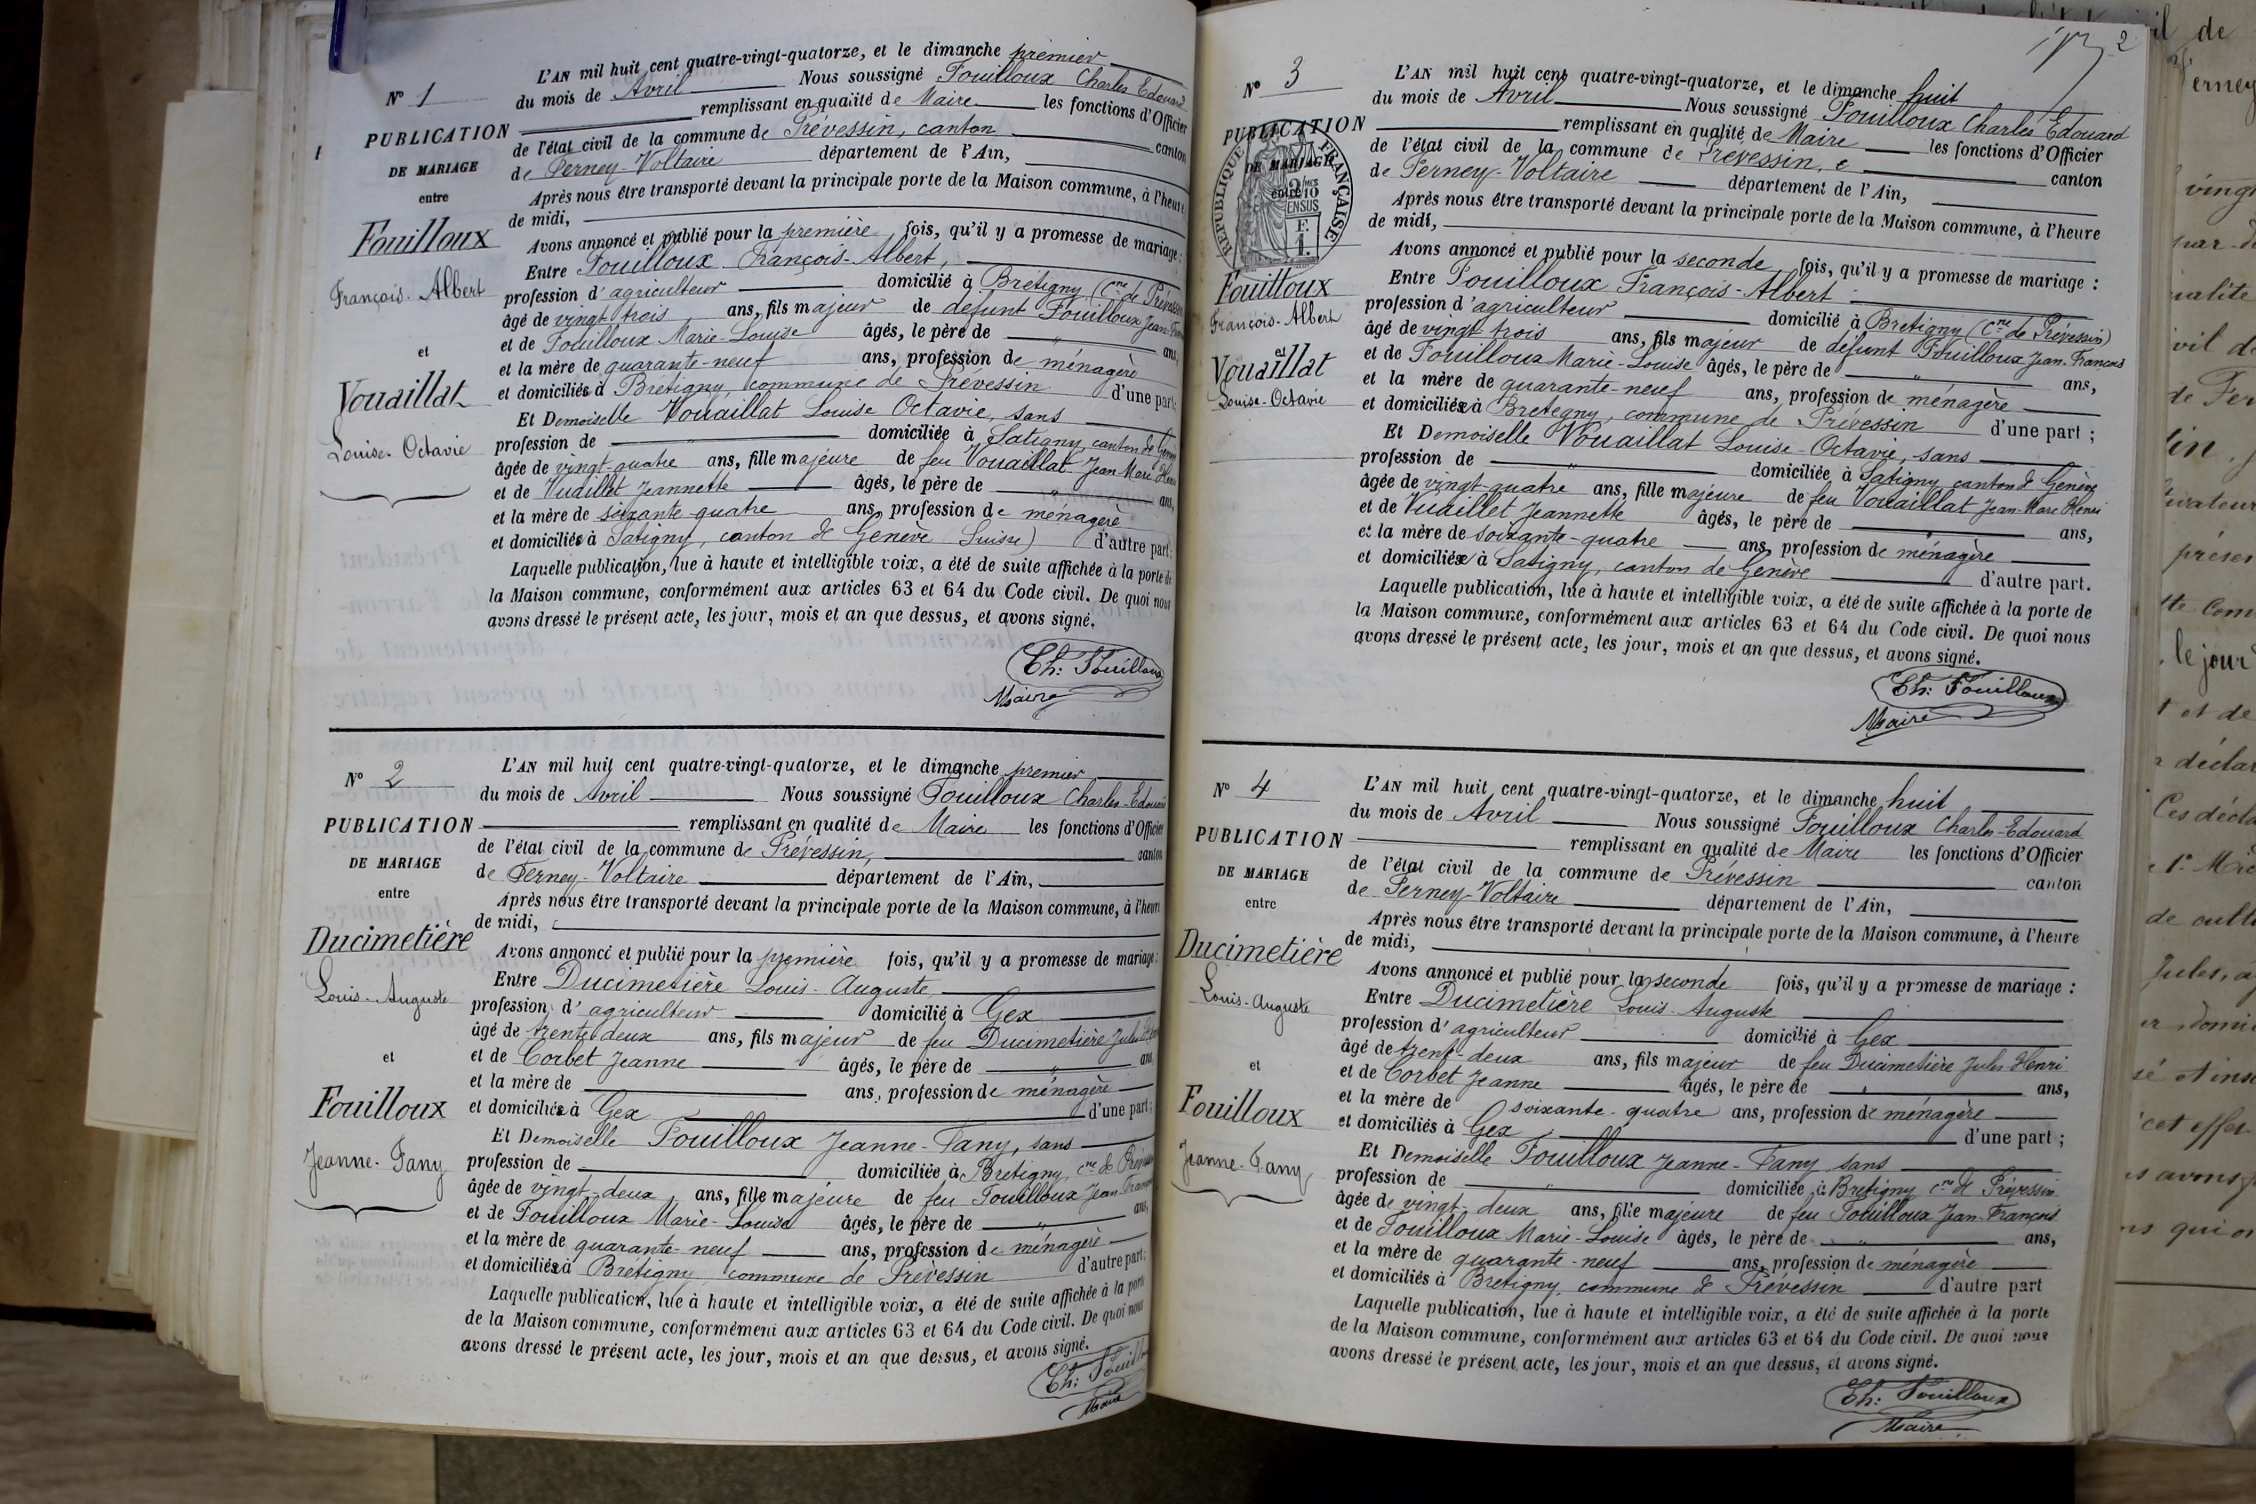 N° 1
PUBLICATION
DE MARIAGE
entre
Fouilloux
François-Albert
et
Vouaillat
Louise-Octavie
L'AN mil huit cent quatre-vingt-quatorze, et le dimanche premier
du mois de Avril Nous soussigné Fouilloux Charles Edouard
remplissant en qualité de Maire les fonctions d'Officier
de l'état civil de la commune de Prévessin, canton canton
de Ferney-Voltaire département de l'Ain,
Après nous être transporté devant la principale porte de la Maison commune, à l'heure
de midi,
Avons annoncé et publié pour la première fois, qu'il y a promesse de mariage :
Entre Fouilloux François-Albert,
profession d'agriculteur domicilié à Bretigny (Cne de Prévessin
âgé de vingt trois ans, fils majeur de défunt Fouilloux Jean-
et de Fouilloux Marie-Louise âgés, le père de " ans,
et la mère de quarante-neuf ans, profession de ménagère
et domiciliés à Bretigny, commune de Prévessin d'une part;
Et Demoiselle Vouaillat Louise Octavie, sans
profession de " domiciliée à Satigny, canton de Genève
âgée de vingt-quatre ans, fille majeure de feu Vouaillat Jean Marc Henri
et de Vuaillet Jeannette âgés, le père de " ans,
et la mère de soixante quatre ans, profession de ménagère
et domiciliés à Satigny, canton de Genève Suisse) d'autre part.
Laquelle publication, lue à haute et intelligible voix, a été de suite affichée à la porte de
la Maison commune, conformément aux articles 63 et 64 du Code civil. De quoi nous
avons dressé le présent acte, les jour, mois et an que dessus, et avons signé.
Ch: Fouilloux
Maire
N° 2
PUBLICATION
DE MARIAGE
entre
Ducimetière
Louis-Auguste
et
Fouilloux
Jeanne-Fany
L'AN mil huit cent quatre-vingt-quatorze, et le dimanche premier
du mois de Avril Nous soussigné Fouilloux Charles-Edouard
remplissant en qualité de Maire les fonctions d'Officier
de l'état civil de la commune de Prévessin, canton
de Ferney-Voltaire département de l'Ain,
Après nous être transporté devant la principale porte de la Maison commune, à l'heure
de midi,
Avons annoncé et publié pour la première fois, qu'il y a promesse de mariage :
Entre Ducimetière Louis-Auguste,
profession d'agriculteur domicilié à Gex
âgé de trente deux ans, fils majeur de feu Ducimetière Jules
et de Corbet Jeanne âgés, le père de " ans,
et la mère de ans, profession de ménagère
et domiciliés à Gex d'une part;
Et Demoiselle Fouilloux Jeanne-Fany, sans
profession de domiciliée à Bretigny, cne de Prévessin
âgée de vingt-deux ans, fille majeure de feu Fouilloux Jean François
et de Fouilloux Marie-Louise âgés, le père de " ans,
et la mère de quarante-neuf ans, profession de ménagère
et domiciliés à Bretigny, commune de Prévessin d'autre part;
Laquelle publication, lue à haute et intelligible voix, a été de suite affichée à la porte
de la Maison commune, conformément aux articles 63 et 64 du Code civil. De quoi nous
avons dressé le présent acte, les jour, mois et an que dessus, et avons signé.
Ch: Fouilloux
Maire
2
N° 3
PUBLICATION
DE MARIAGE
entre
RÉPUBLIQUE FRANÇAISE
2/10 mes
EN SUS
F.
1.
Fouilloux
François-Albert
et
Vouaillat
Louise-Octavie
L'AN mil huit cent quatre-vingt-quatorze, et le dimanche huit
du mois de Avril Nous soussigné Fouilloux Charles Edouard
remplissant en qualité de Maire les fonctions d'Officier
de l'état civil de la commune de Prévessin, c canton
de Ferney-Voltaire département de l'Ain,
Après nous être transporté devant la principale porte de la Maison commune, à l'heure
de midi,
Avons annoncé et publié pour la seconde fois, qu'il y a promesse de mariage :
Entre Fouilloux François-Albert
profession d'agriculteur domicilié à Bretigny (Cne de Prévessin)
âgé de vingt trois ans, fils majeur de défunt Fouilloux Jean-François
et de Fouilloux Marie-Louise âgés, le père de " ans,
et la mère de quarante-neuf ans, profession de ménagère
et domiciliés à Bretegny, commune de Prévessin d'une part ;
Et Demoiselle Vouaillat Louise-Octavie, sans
profession de " domiciliée à Satigny canton d Genève
âgée de vingt-quatre ans, fille majeure de feu Vouaillat Jean-Marc Henri
et de Vuaillet Jeannette âgés, le père de ans,
et la mère de soixante-quatre ans, profession de ménagère
et domiciliés à Satigny, canton de Genève d'autre part.
Laquelle publication, lue à haute et intelligible voix, a été de suite affichée à la porte de
la Maison commune, conformément aux articles 63 et 64 du Code civil. De quoi nous
avons dressé le présent acte, les jour, mois et an que dessus, et avons signé.
Ch: Fouilloux
Maire
N° 4
PUBLICATION
DE MARIAGE
entre
Ducimetière
Louis-Auguste
et
Fouilloux
Jeanne-Fany
L'AN mil huit cent quatre-vingt-quatorze, et le dimanche huit
du mois de Avril Nous soussigné Fouilloux Charles-Edouard
remplissant en qualité de Maire les fonctions d'Officier
de l'état civil de la commune de Prévessin canton
de Ferney-Voltaire département de l'Ain,
Après nous être transporté devant la principale porte de la Maison commune, à l'heure
de midi,
Avons annoncé et publié pour la seconde fois, qu'il y a promesse de mariage :
Entre Ducimetière Louis-Auguste
profession d'agriculteur domicilié à Gex
âgé de trente-deux ans, fils majeur de feu Ducimetière Jules Henri
et de Corbet Jeanne âgés, le père de ans,
et la mère de soixante-quatre ans, profession de ménagère
et domiciliés à Gex d'une part ;
Et Demoiselle Fouilloux Jeanne-Fany sans
profession de " domiciliée à Bretigny cne de Prévessin
âgée de vingt-deux ans, fille majeure de feu Fouilloux Jean-François
et de Fouilloux Marie-Louise âgés, le père de " ans,
et la mère de quarante-neuf ans, profession de ménagère
et domiciliés à Bretigny, commune de Prévessin d'autre part
Laquelle publication, lue à haute et intelligible voix, a été de suite affichée à la porte
de la Maison commune, conformément aux articles 63 et 64 du Code civil. De quoi nous
avons dressé le présent acte, les jour, mois et an que dessus, et avons signé.
Ch: Fouilloux
Maire